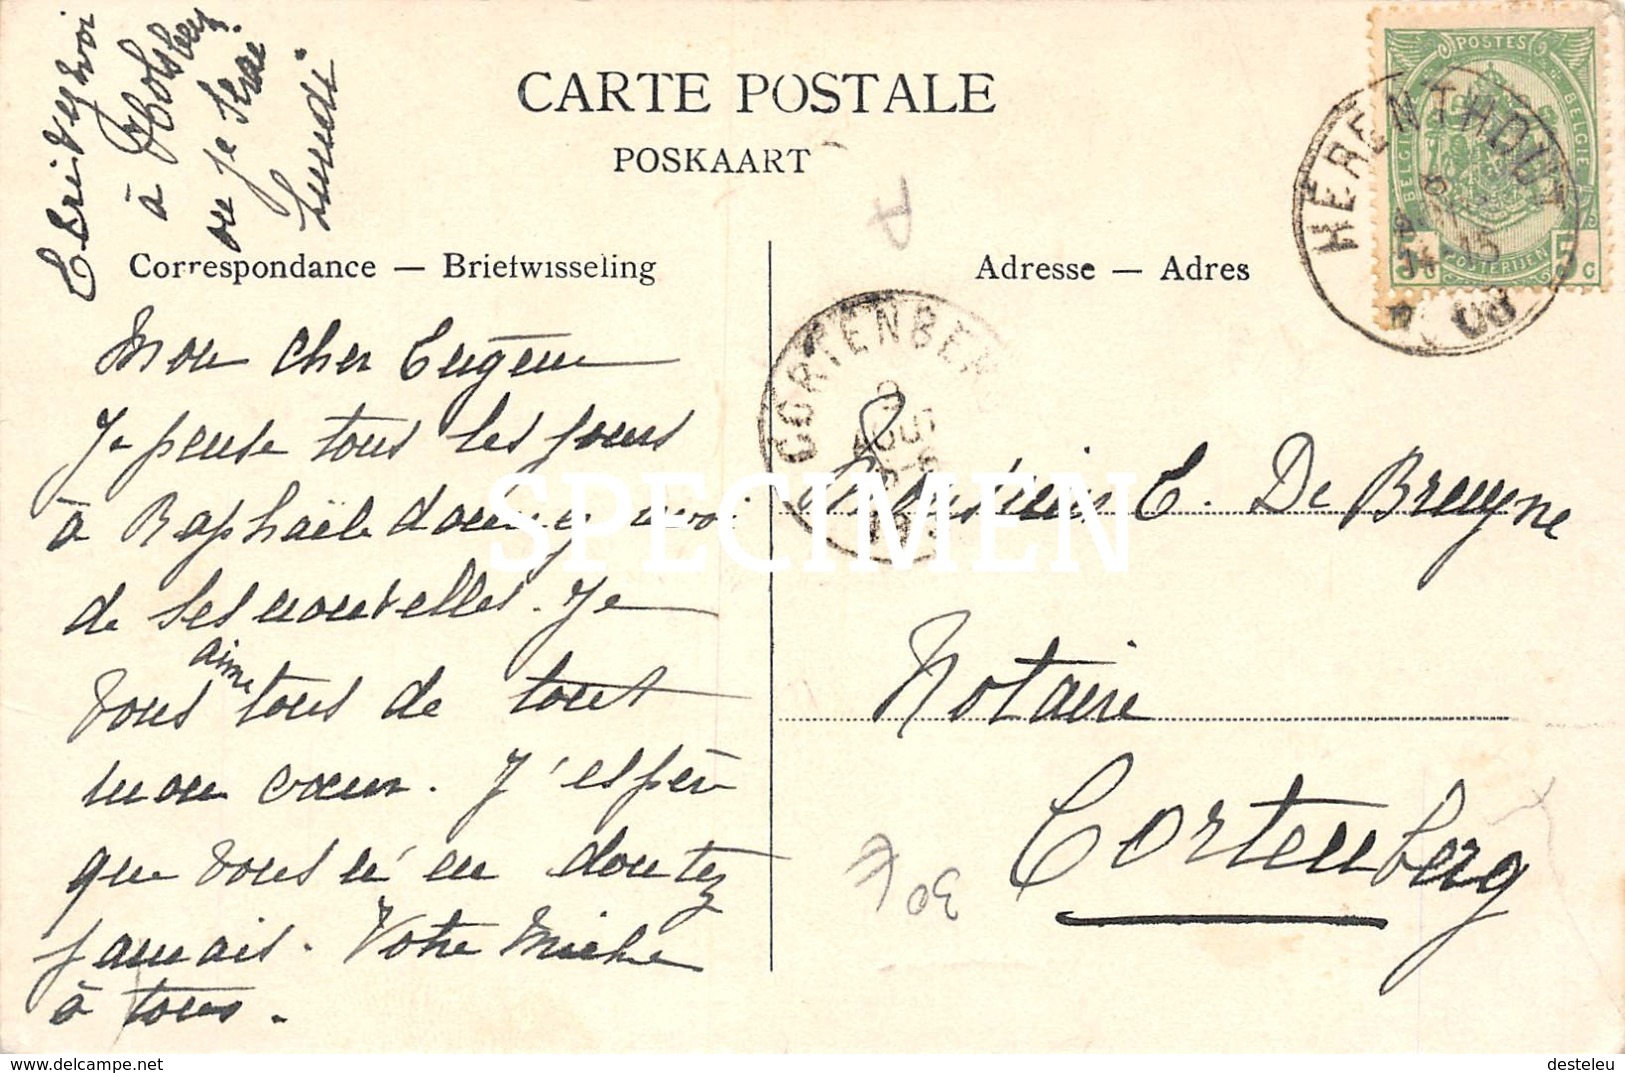 Ecrivez moi
à
ou je serai
Lundi
CARTE POSTALE
POSKAART
Correspondance — Briefwisseling
Adresse — Adres
POSTES
BELGIQUE
BELGIE
POSTERIJEN
5c 5c
HERENTHOUT
15
08
CORTENBERG
8
AOUT
Mon cher Eugène
Je pense tous les jours
à Raphaël donnez moi
de ses nouvelles. Je
aime
vous tous de tout
mon cœur. J'espère
que vous n'en doutez
jamais. Votre Miche
à tous.
Monsieur E. De Bruyne
Notaire
Cortenberg
30F
SPECIMEN
www.delcampe.net
desteleu